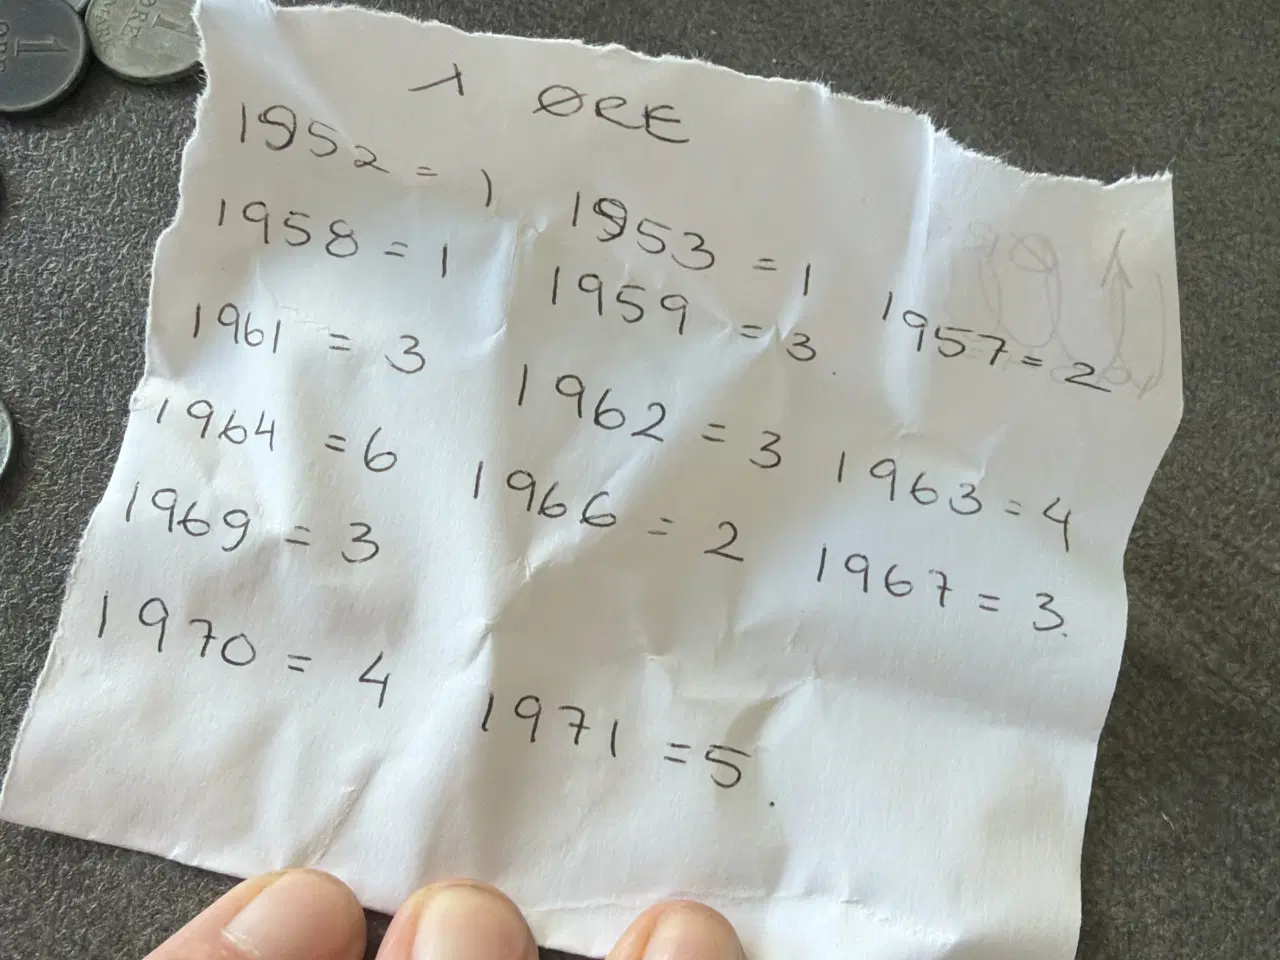 1 ORE
1 ØRE
1952 = 1
1953 = 1
1957 = 2
1958 = 1
1959 = 3.
1961 = 3
1962 = 3
1963 = 4
1964 = 6
1966 = 2
1967 = 3.
1969 = 3
1970 = 4
1971 = 5.